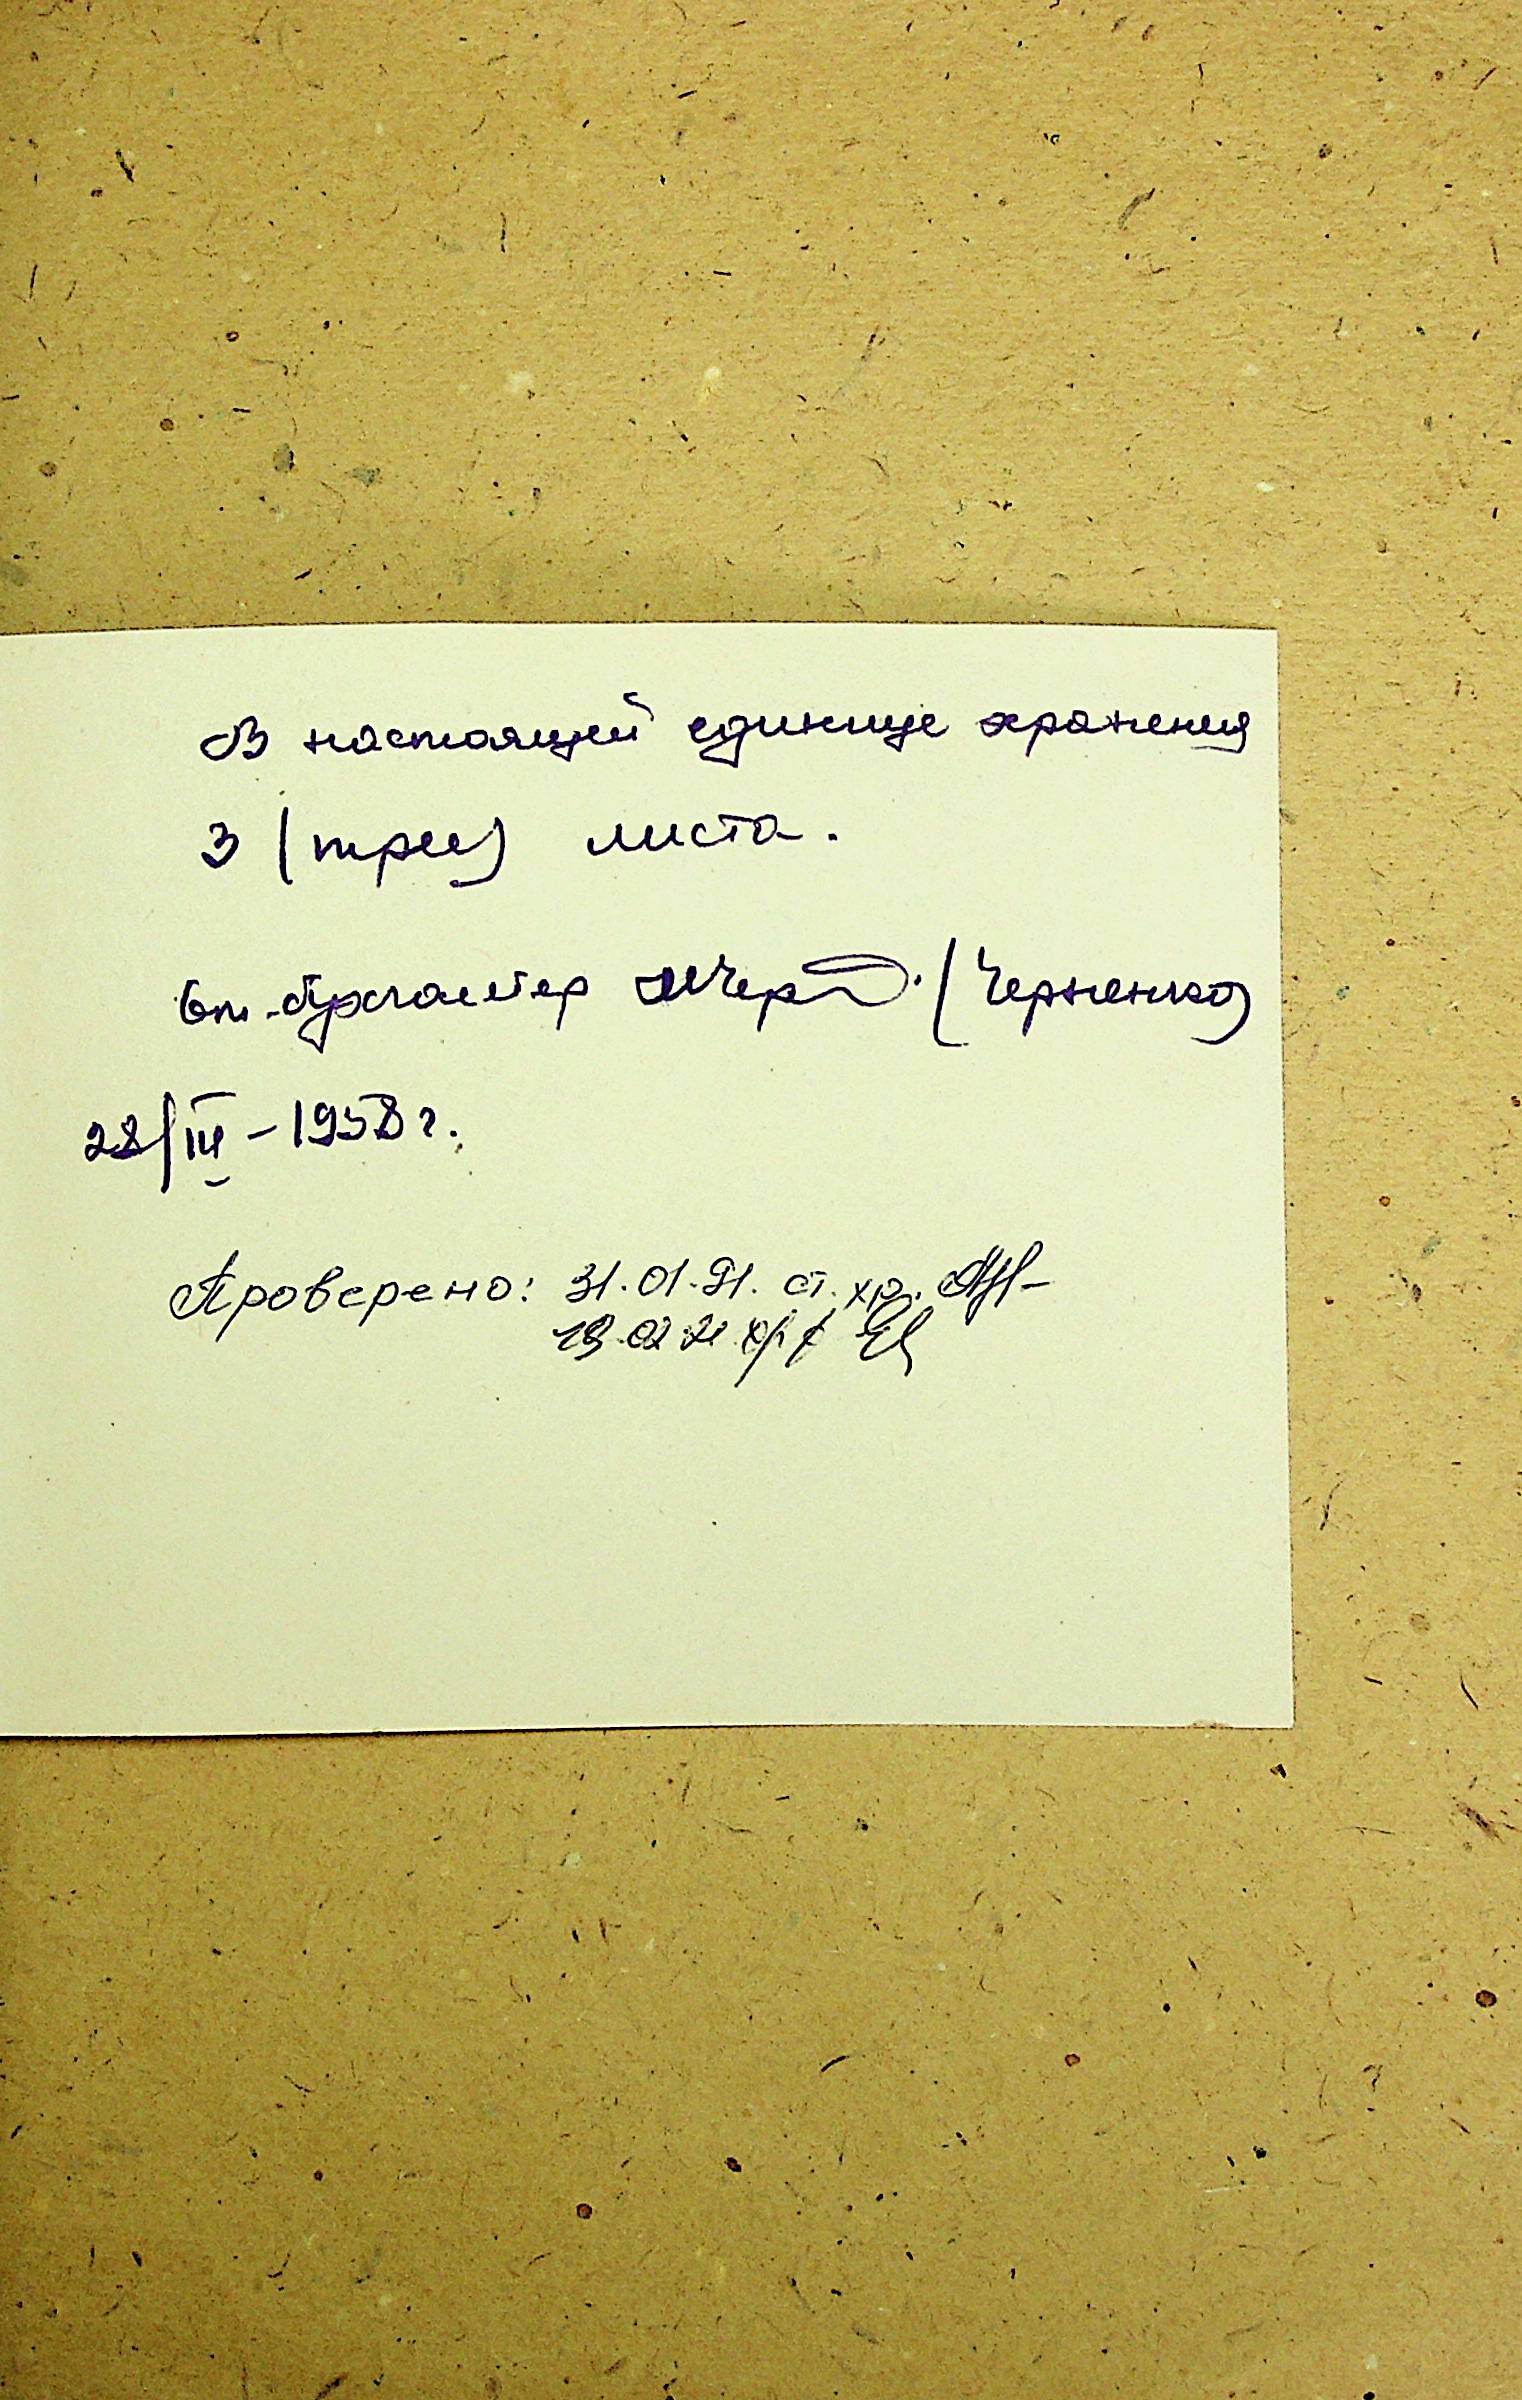 В настоящей единице хранения
3 (три) листа.
бухгалтер (Черненко)
28/III – 1958 г.
Проверено: 31.01.91. ст. хр.